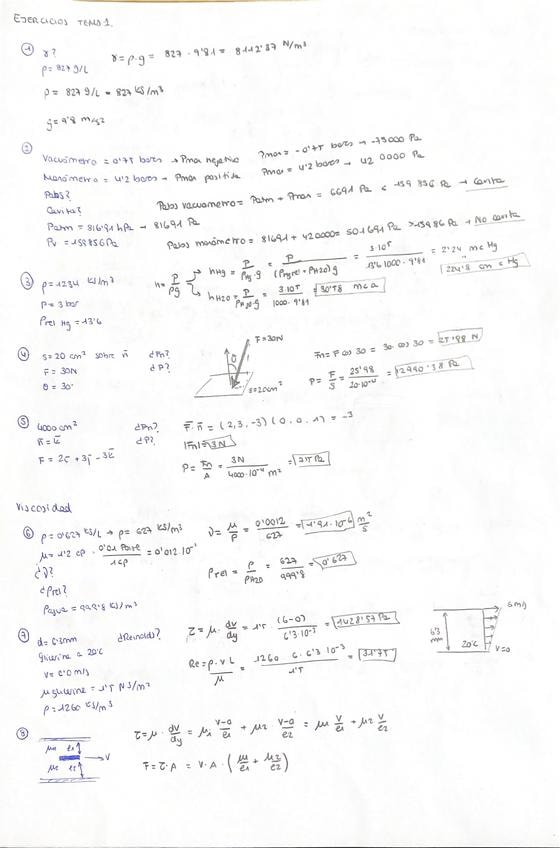 EJERCICIOS TEMA 1.
① γ?
ρ = 827 g/L
γ = ρ·g = 827 · 9'81 = 8112'87 N/m³
ρ = 827 g/L = 827 kg/m³
g = 9'8 m/s²
②
Vacuómetro = 0'75 bares → Pman negativa Pman = -0'75 bares → -75000 Pa
Manómetro = 4'2 bares → Pman positiva Pman = 4'2 bares → 420000 Pa
Pabs?
Cavita?
Pabs vacuometro = Patm + Pman = 6691 Pa < 159856 Pa → Cavita
Patm = 816'91 hPa → 81691 Pa
Pv = 159856 Pa
Pabs manómetro = 81691 + 420000 = 501691 Pa > 15986 Pa → No cavita
③ ρ = 1234 kg/m³
P = 3 bar
ρrel Hg = 13'6
h = P/ρg
hHg = P/ρHg·g = P/(ρrel·ρH2O)g = 3·10⁵/13'6·1000·9'81 = 2'24 mcHg
224'8 cm c Hg
hH2O = P/ρH2O·g = 3·10⁵/1000·9'81 = 30'58 mca
④ S = 20 cm² sobre n̄ ¿Fn?
F = 30N ¿P?
θ = 30°
F = 30N
S = 20cm²
Fn = F cos 30 = 30 · cos 30 = 25'98 N
P = F/S = 25'98/20·10⁻⁴ = 12990'38 Pa
⑤ 4000 cm² ¿Fn?
¿P?
F = 2i + 3j - 3k
F̄·n̄ = (2, 3, -3)(0, 0, 1) = -3
|Fn| = 3N
P = Fn/A = 3N/4000·10⁻⁴ m² = 7'5 Pa
Viscosidad
⑥ ρ = 0'627 kg/L → ρ = 627 kg/m³
μ = 1'2 cP · 0'01 Poise/1 cP = 0'012·10⁻¹
¿ν?
¿ρrel?
ρagua = 999'8 kg/m³
ν = μ/ρ = 0'0012/627 = 1'91·10⁻⁶ m²/s
ρrel = ρ/ρH2O = 627/999'8 = 0'627
⑦ d = 6'3mm ¿Reinolds?
Glicerina a 20°C
V = 6'0 m/s
μ glicerina = 1'5 N S/m²
ρ = 1260 kg/m³
τ = μ · dv/dy = 1'5 · (6-0)/6'3·10⁻³ = 1428'57 Pa
Re = ρ·v·L/μ = 1260 · 6 · 6'3·10⁻³/1'5 = 31'75
6 m/s
6'3 mm
20°C
V=0
⑧
μ1 e1
μ2 e2
V
τ = μ · dv/dy = μ1 V-0/e1 + μ2 V-0/e2 = μ1 V/e1 + μ2 V/e2
F = τ·A = V·A · (μ1/e1 + μ2/e2)